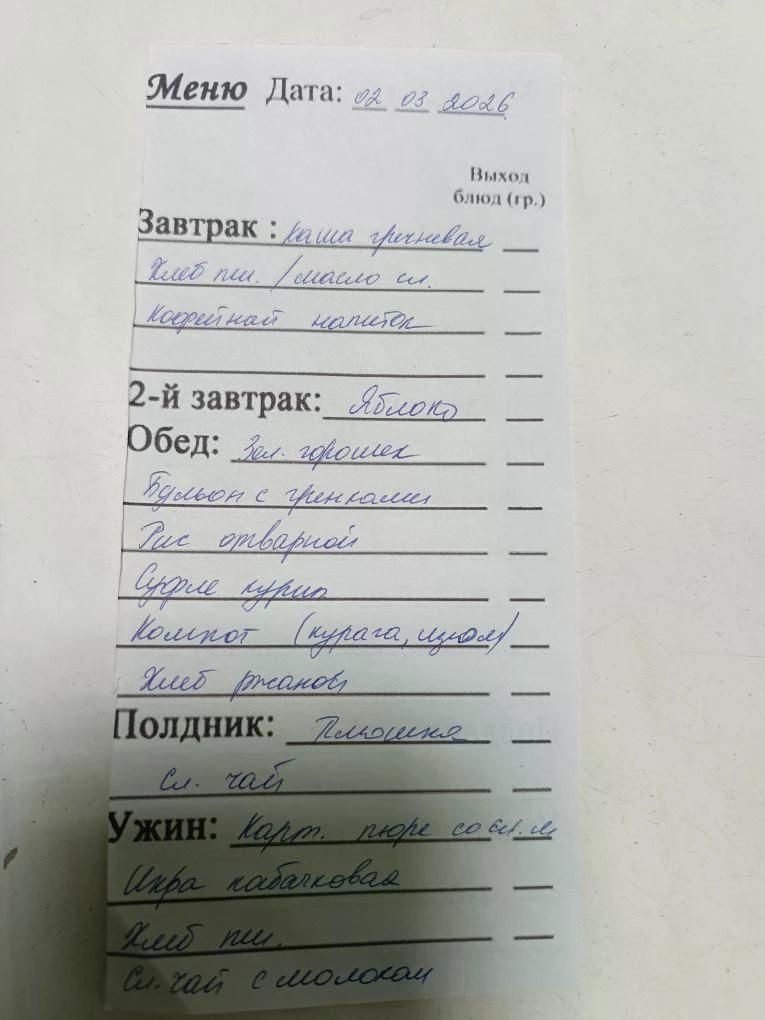 Меню Дата: 02 03 2026
Выход
блюд (гр.)
Завтрак : Каша гречневая
Хлеб пш. / масло сл.
Кофейный напиток
2-й завтрак: Яблоко
Обед: Зел. горошек
Бульон с гренками
Рис отварной
Суфле курин
Компот (курага, изюм)
Хлеб ржаной
Полдник: Плюшка
Сл. чай
Ужин: Карт. пюре со сл. м
Икра кабачковая
Хлеб пш.
Сл. чай с молоком